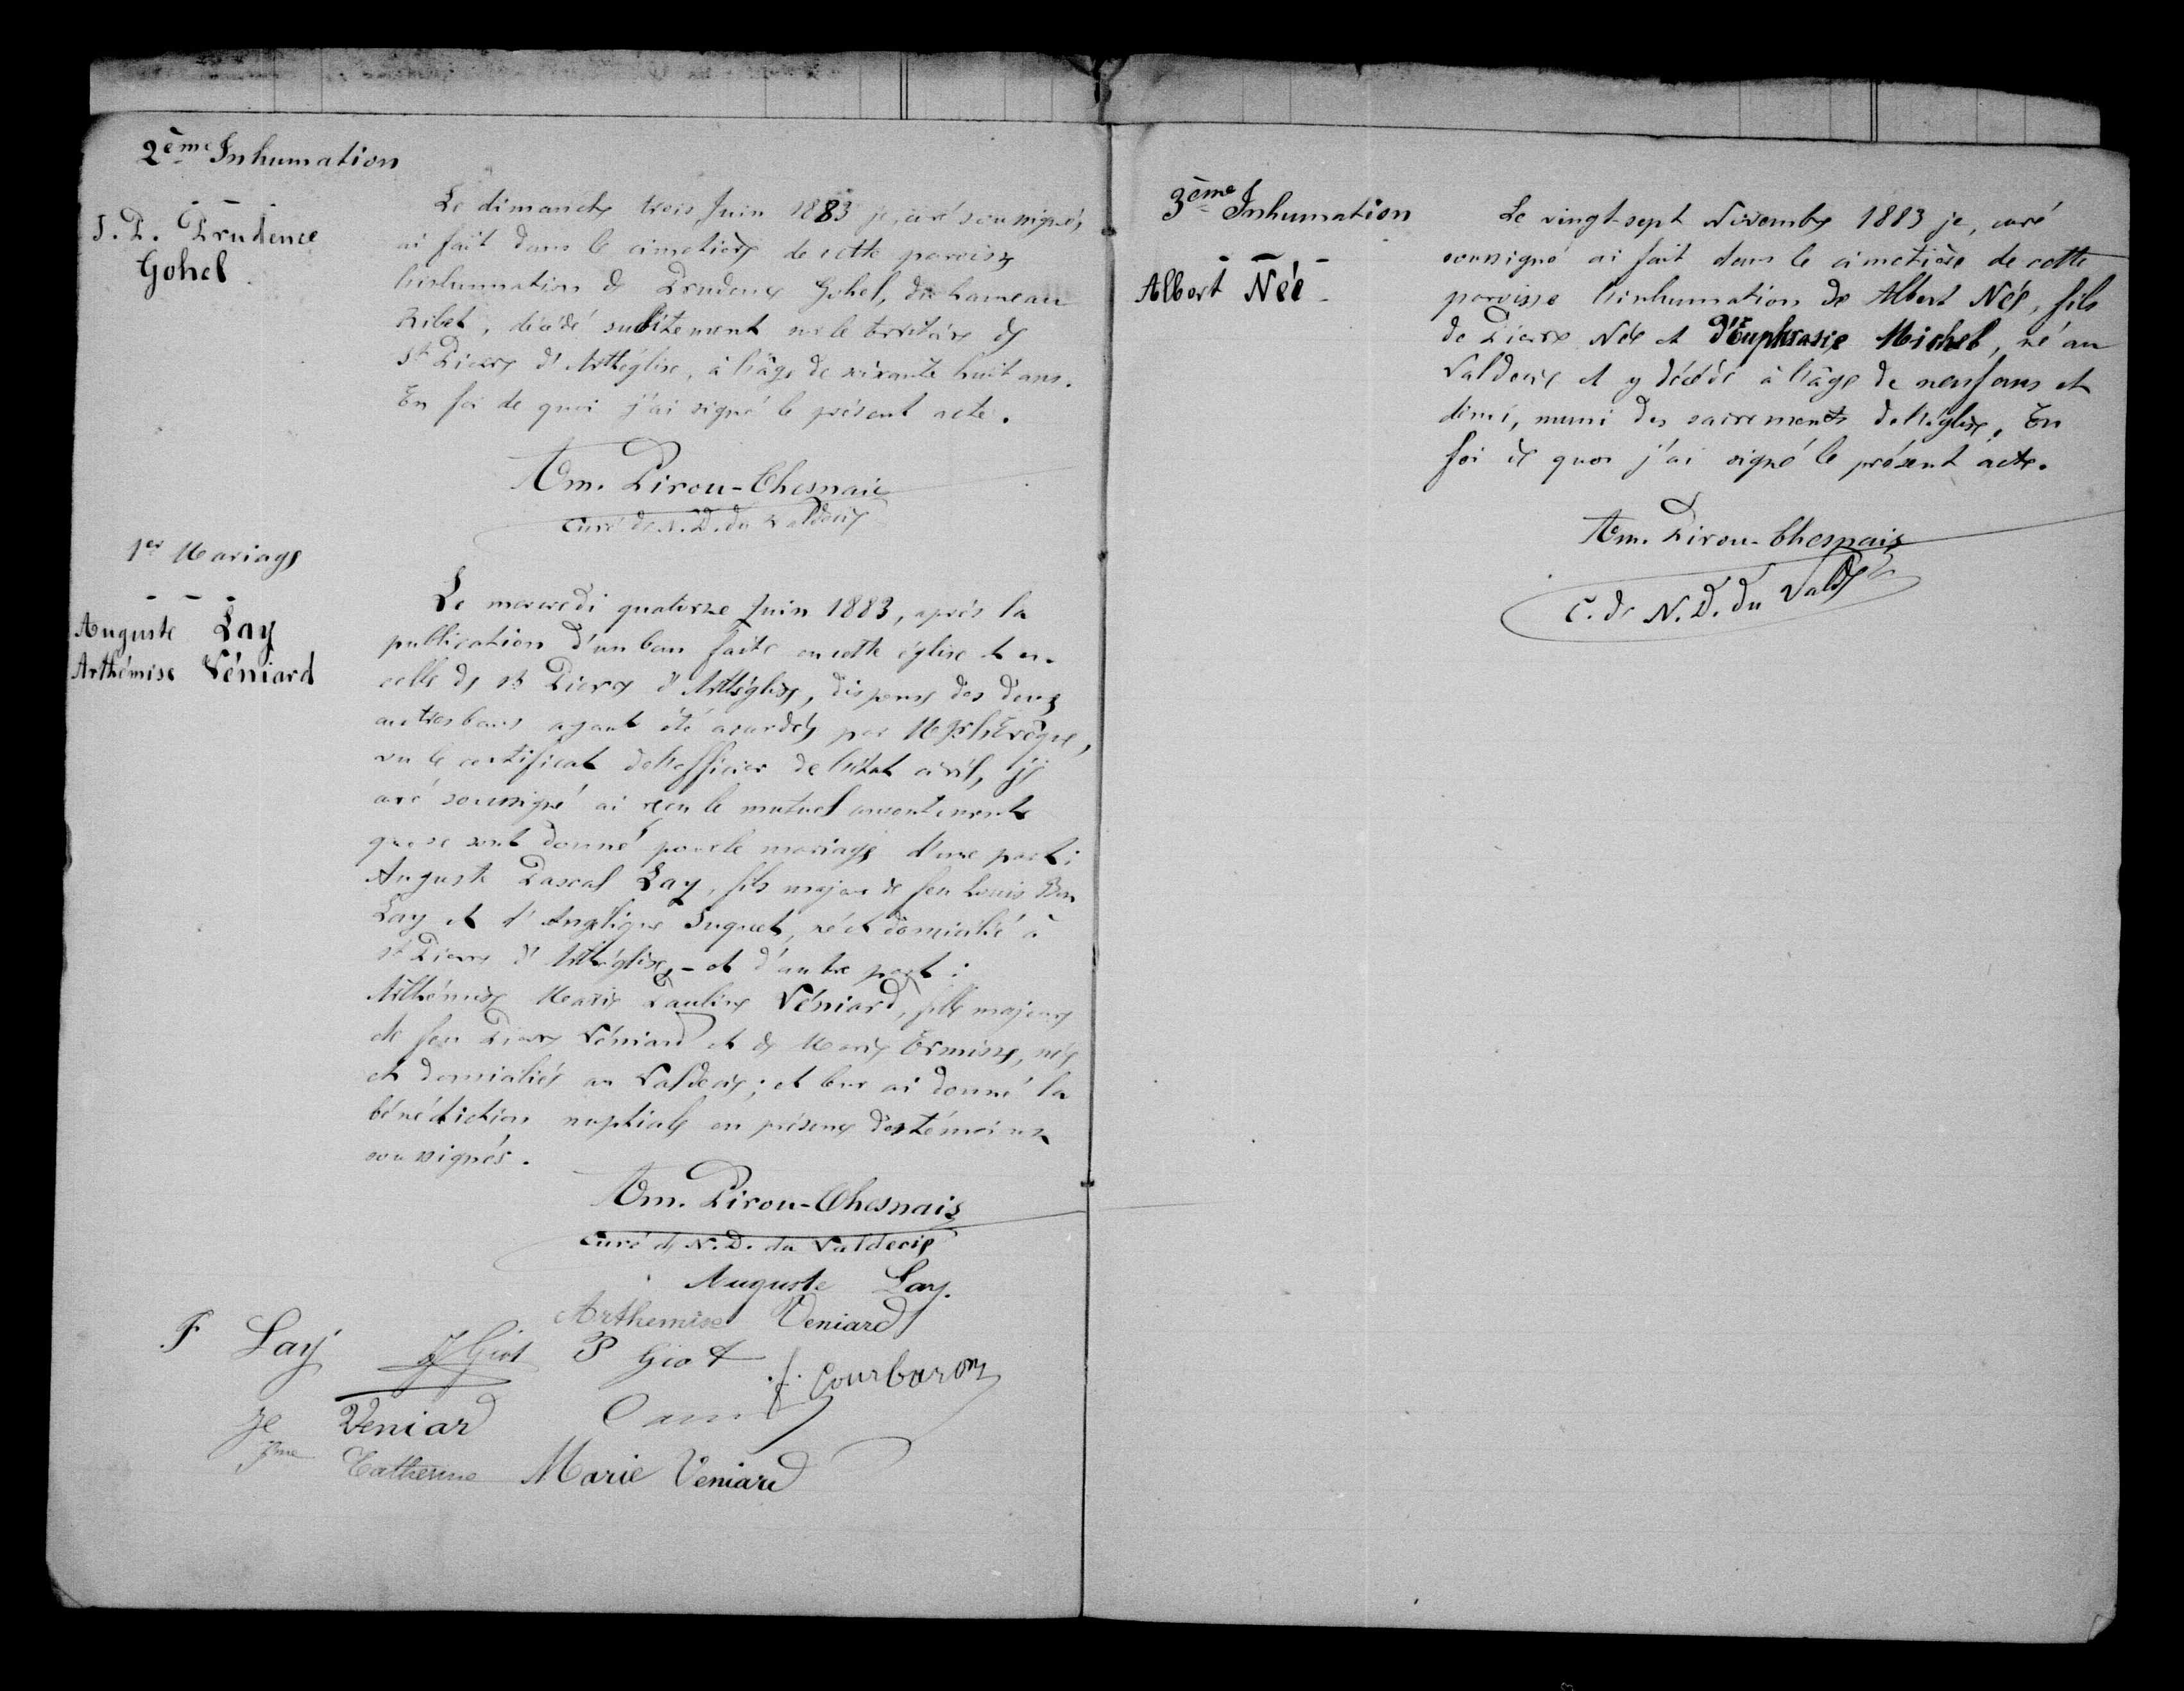 2ème Inhumation
J. P. Prudence
Gohel.
Le dimanche trois Juin 1883 je, curé soussigné,
ai fait dans le cimetière de cette paroisse
l'inhumation de Prudence Gohel, du hameau
Ribet, décédé subitement sur le territoire de
St Pierre d'Arthéglise, à l'âge de soixante huit ans.
En foi de quoi j'ai signé le présent acte.
Am. Pirou-Chesnaie
curé de N. D. du Valdecie
1er Mariage
Auguste Lay
Arthémise Véniard
Le mercredi quatorze Juin 1883, après la
publication d'un ban faite en cette église et en
celle de St Pierre d'Arthéglise, dispense des deux
autres bans ayant été accordée par Mgr l'Evêque,
vu le certificat de l'officier de l'état civil, je
curé soussigné ai reçu le mutuel consentement
que se sont donné pour le mariage d'une part:
Auguste Pascal Lay, fils majeur de feu Louis Bon
Lay et d'Angélique Suquet, né et domicilié à
St Pierre d'Arthéglise, - et d'autre part:
Arthémise Marie Pauline Véniard, fille majeure
de feu Pierre Véniard et de Marie Ermisse, née
et domiciliée au Valdecie; et leur ai donné la
bénédiction nuptiale en présence des témoins
soussignés.
Am. Pirou-Chesnaie
curé de N. D. du Valdecie
Auguste Lay.
Arthemise Veniard
F Lay J Giot P Giot f. Courbaron
Veniard
Catherine Marie Veniard
3ème Inhumation
Albert Née
Le vingt-sept Novembre 1883 je, curé
soussigné ai fait dans le cimetière de cette
paroisse l'inhumation de Albert Née, fils
de Pierre Née et d'Euphrasie Michel, né au
Valdecie et y décédé à l'âge de neuf ans et
demi, muni des sacrements de l'église. En
foi de quoi j'ai signé le présent acte.
Am. Pirou-Chesnaie
C. de N. D. du Valdie